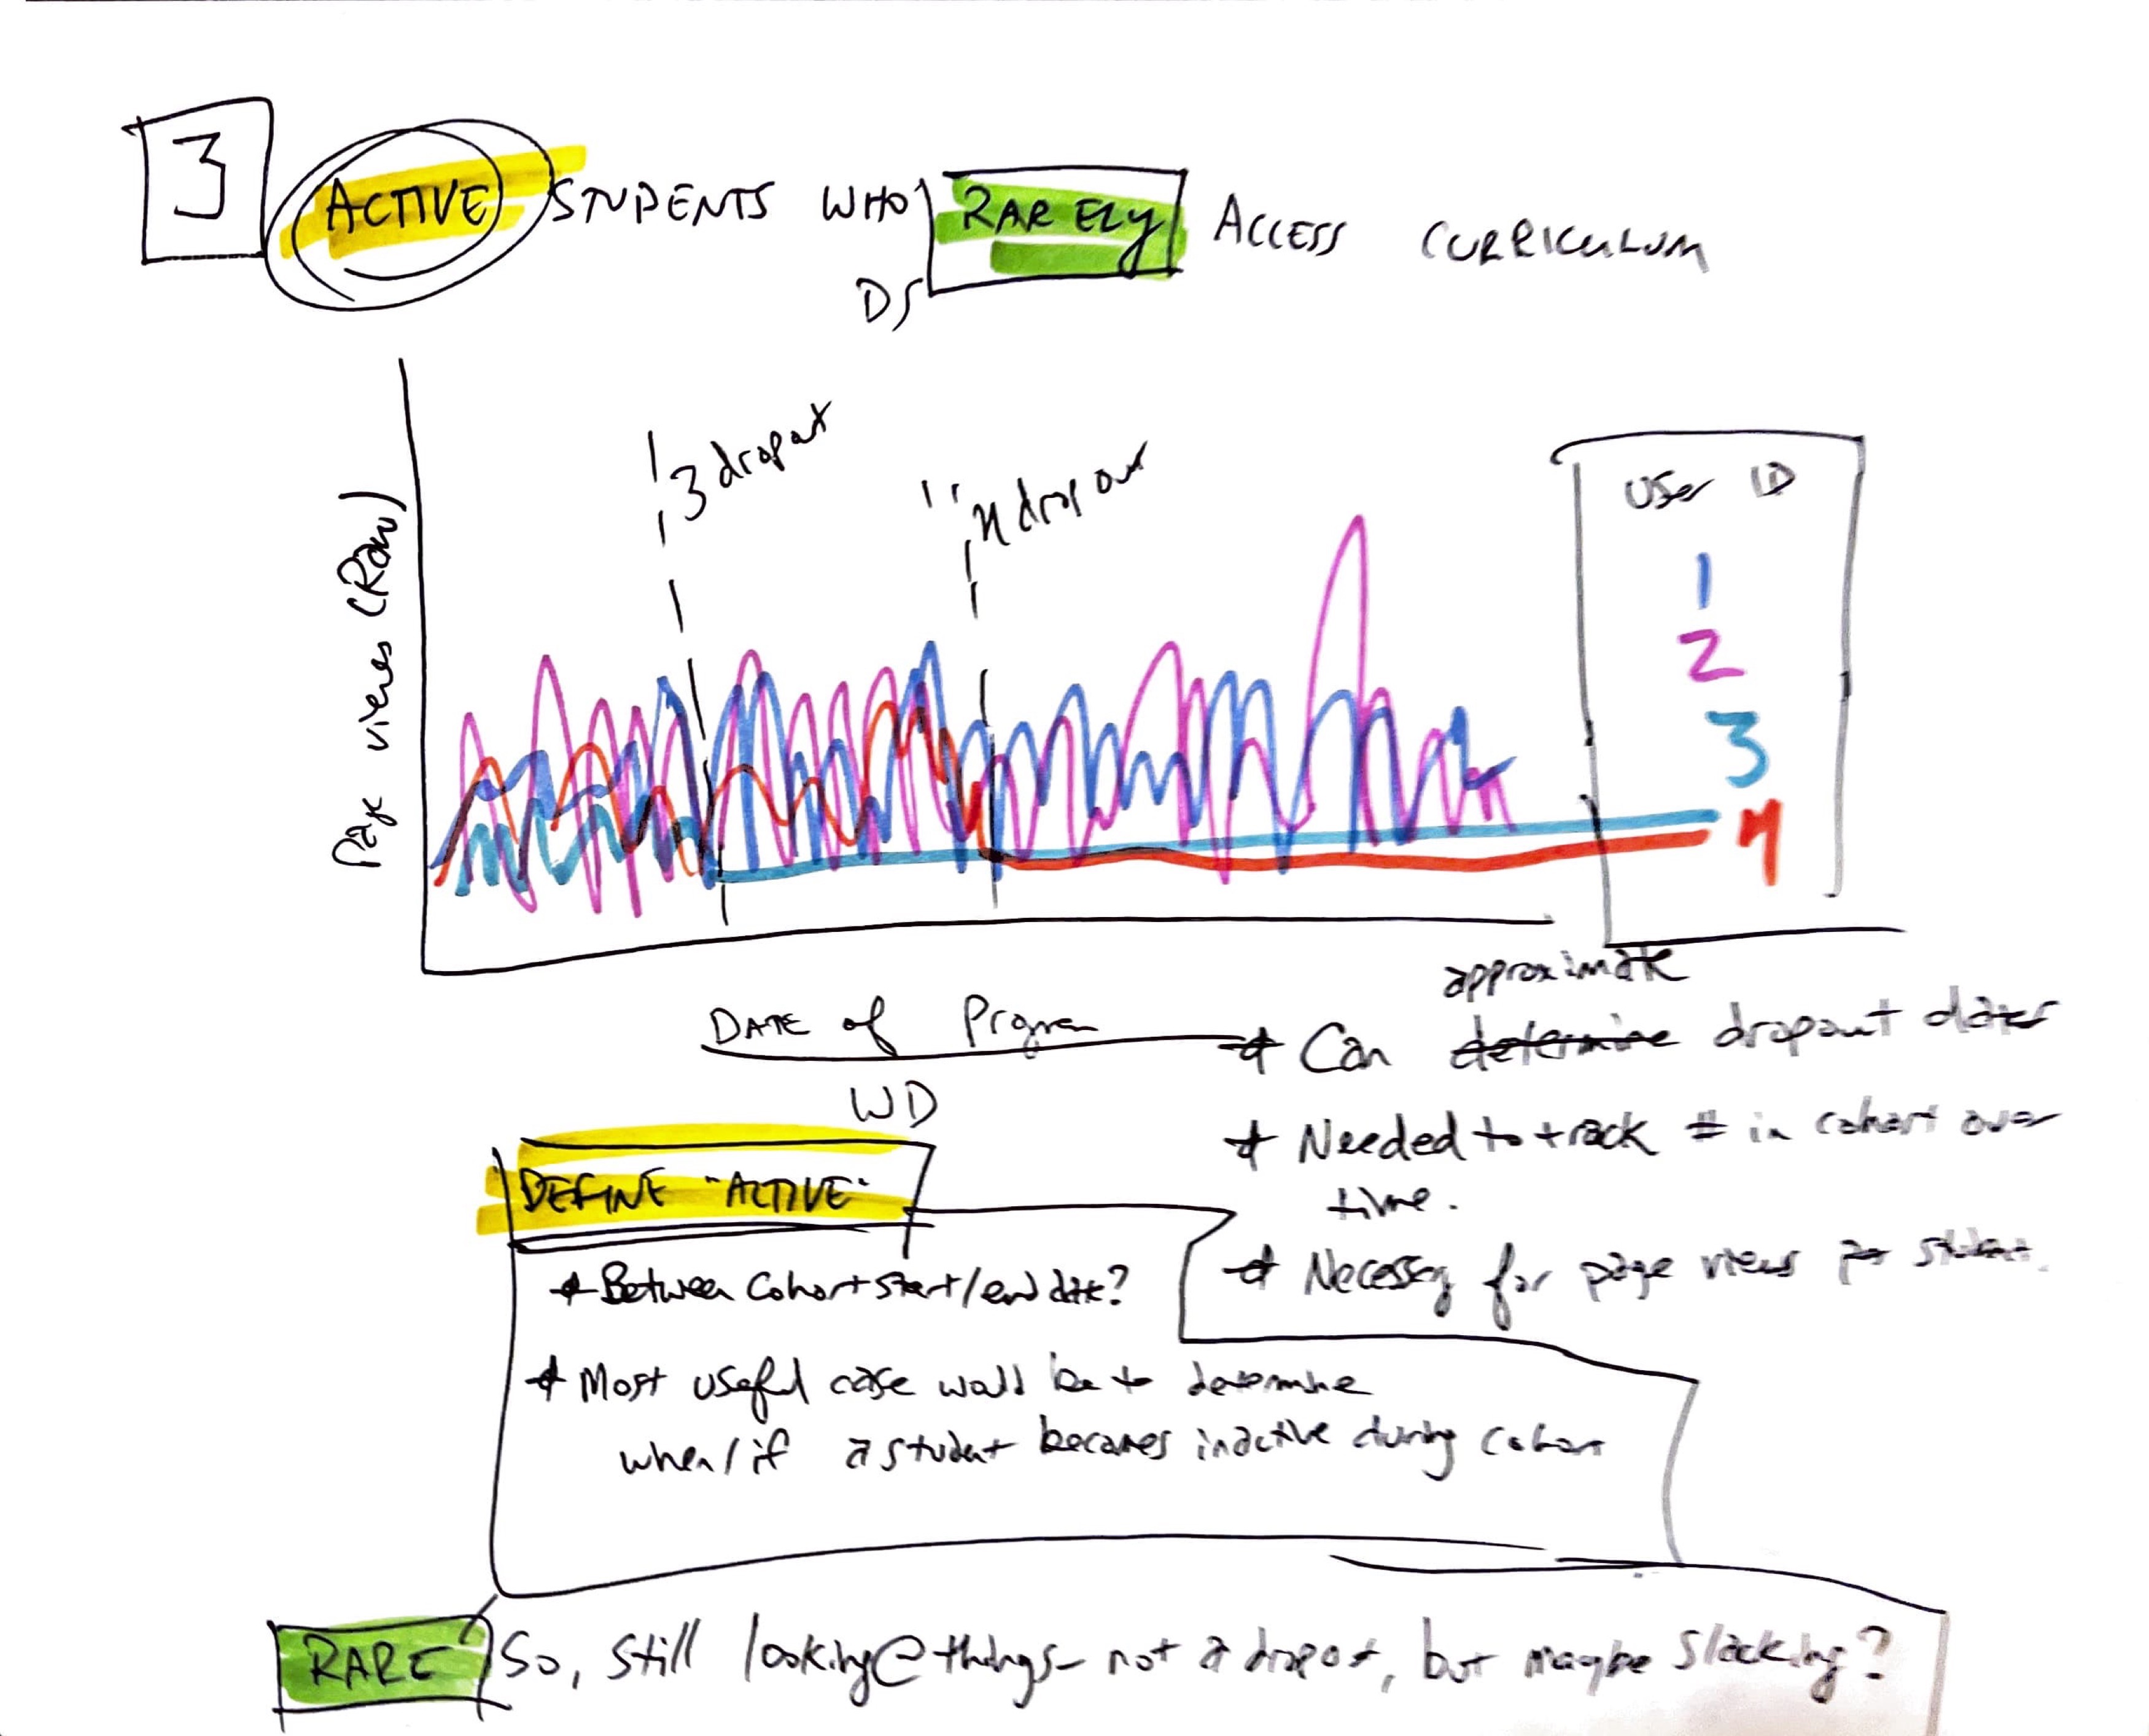 3
ACTIVE STUDENTS WHO RARELY ACCESS CURRICULUM
DS
3 dropout
4 drop out
Page views (Raw)
User ID
1
2
3
4
DATE of Program
WD
approximate
Can determine dropout dates
Needed to track # in cohort over
time.
Necessary for page views per student.
DEFINE "ACTIVE"
Between Cohort start/end date?
Most useful case would be to determine
when/if a student becomes inactive during cohort
RARE So, still looking @ things - not a dropout, but maybe slacking?